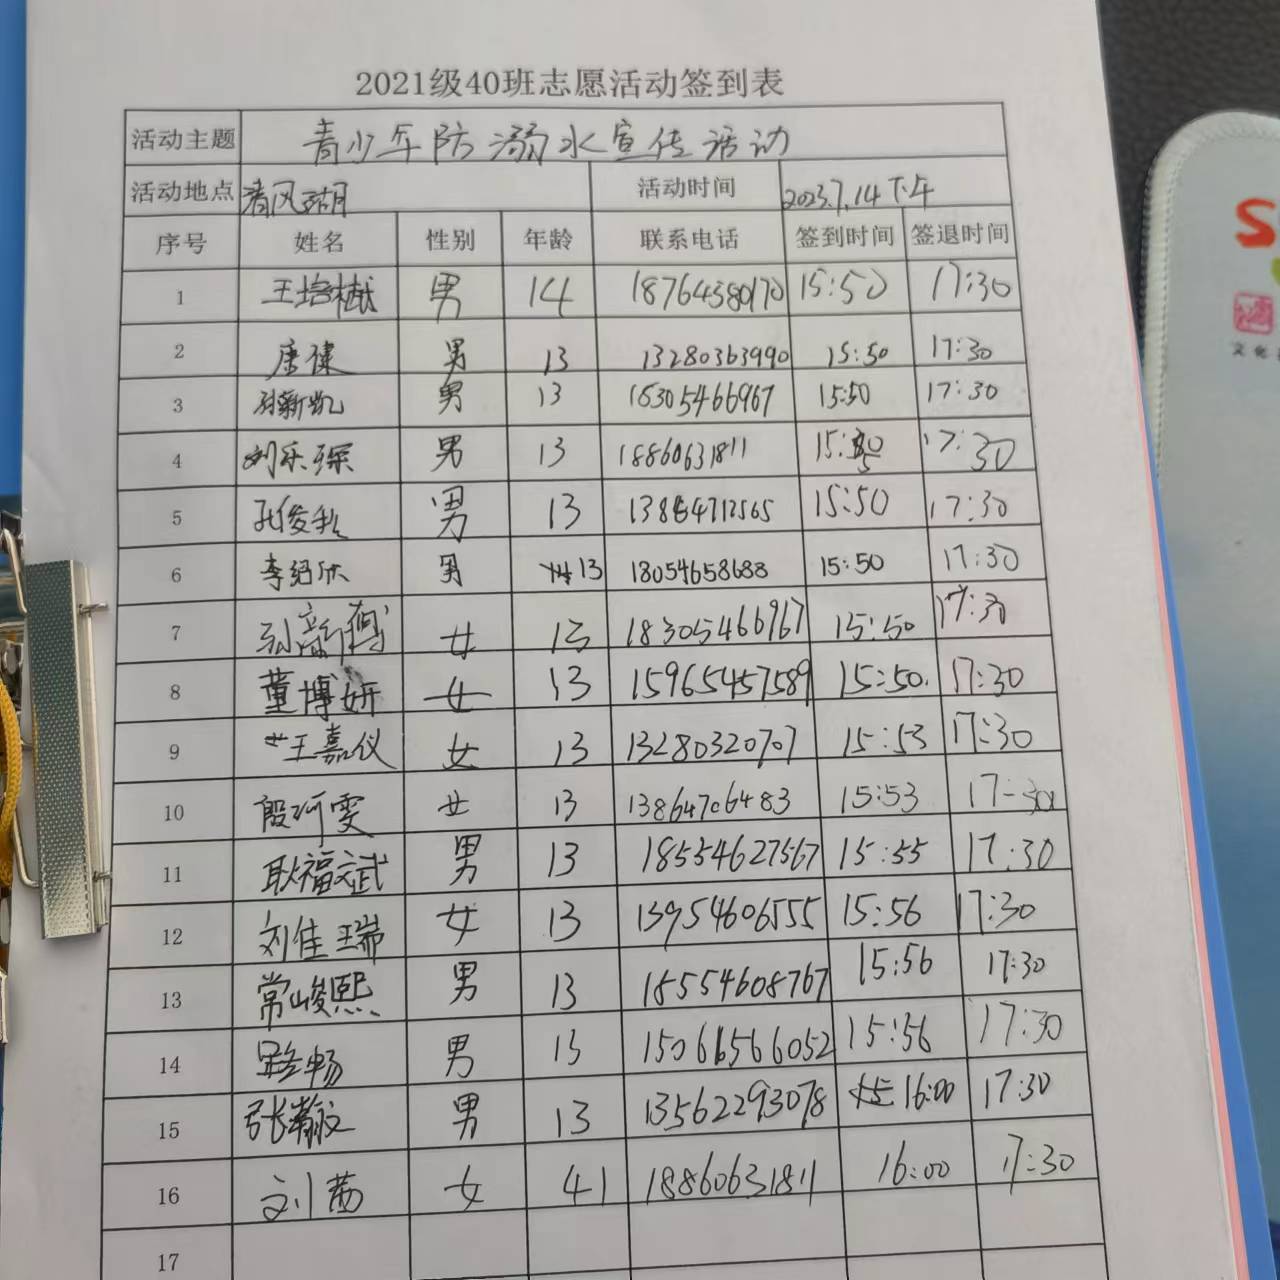 2021级40班志愿活动签到表
活动主题 青少年防溺水宣传活动
活动地点 清风湖 活动时间 2023.7.14下午
序号 姓名 性别 年龄 联系电话 签到时间 签退时间
1 王培樾 男 14 18764380170 15:50 17:30
2 唐健 男 13 13280363990 15:50 17:30
3 孙新凯 男 13 18305466967 15:50 17:30
4 刘乐琛 男 13 18860631811 15:50 17:30
5 孔俊 男 13 13864712565 15:50 17:30
6 李绍欣 男 13 18054658688 15:50 17:30
7 孙新 女 13 18305466967 15:50 17:30
8 董博妍 女 13 15965457589 15:50 17:30
9 王嘉仪 女 13 13280320707 15:53 17:30
10 殷珂雯 女 13 13864706483 15:53 17-30
11 耿福斌 男 13 18554627567 15:55 17:30
12 刘佳瑞 女 13 13954606555 15:56 17:30
13 常峻熙 男 13 18554608767 15:56 17:30
14 路畅 男 13 15066566052 15:56 17:30
15 张瀚文 男 13 13562293078 16:00 17:30
16 刘茜 女 41 18860631811 16:00 17:30
17
S
文化